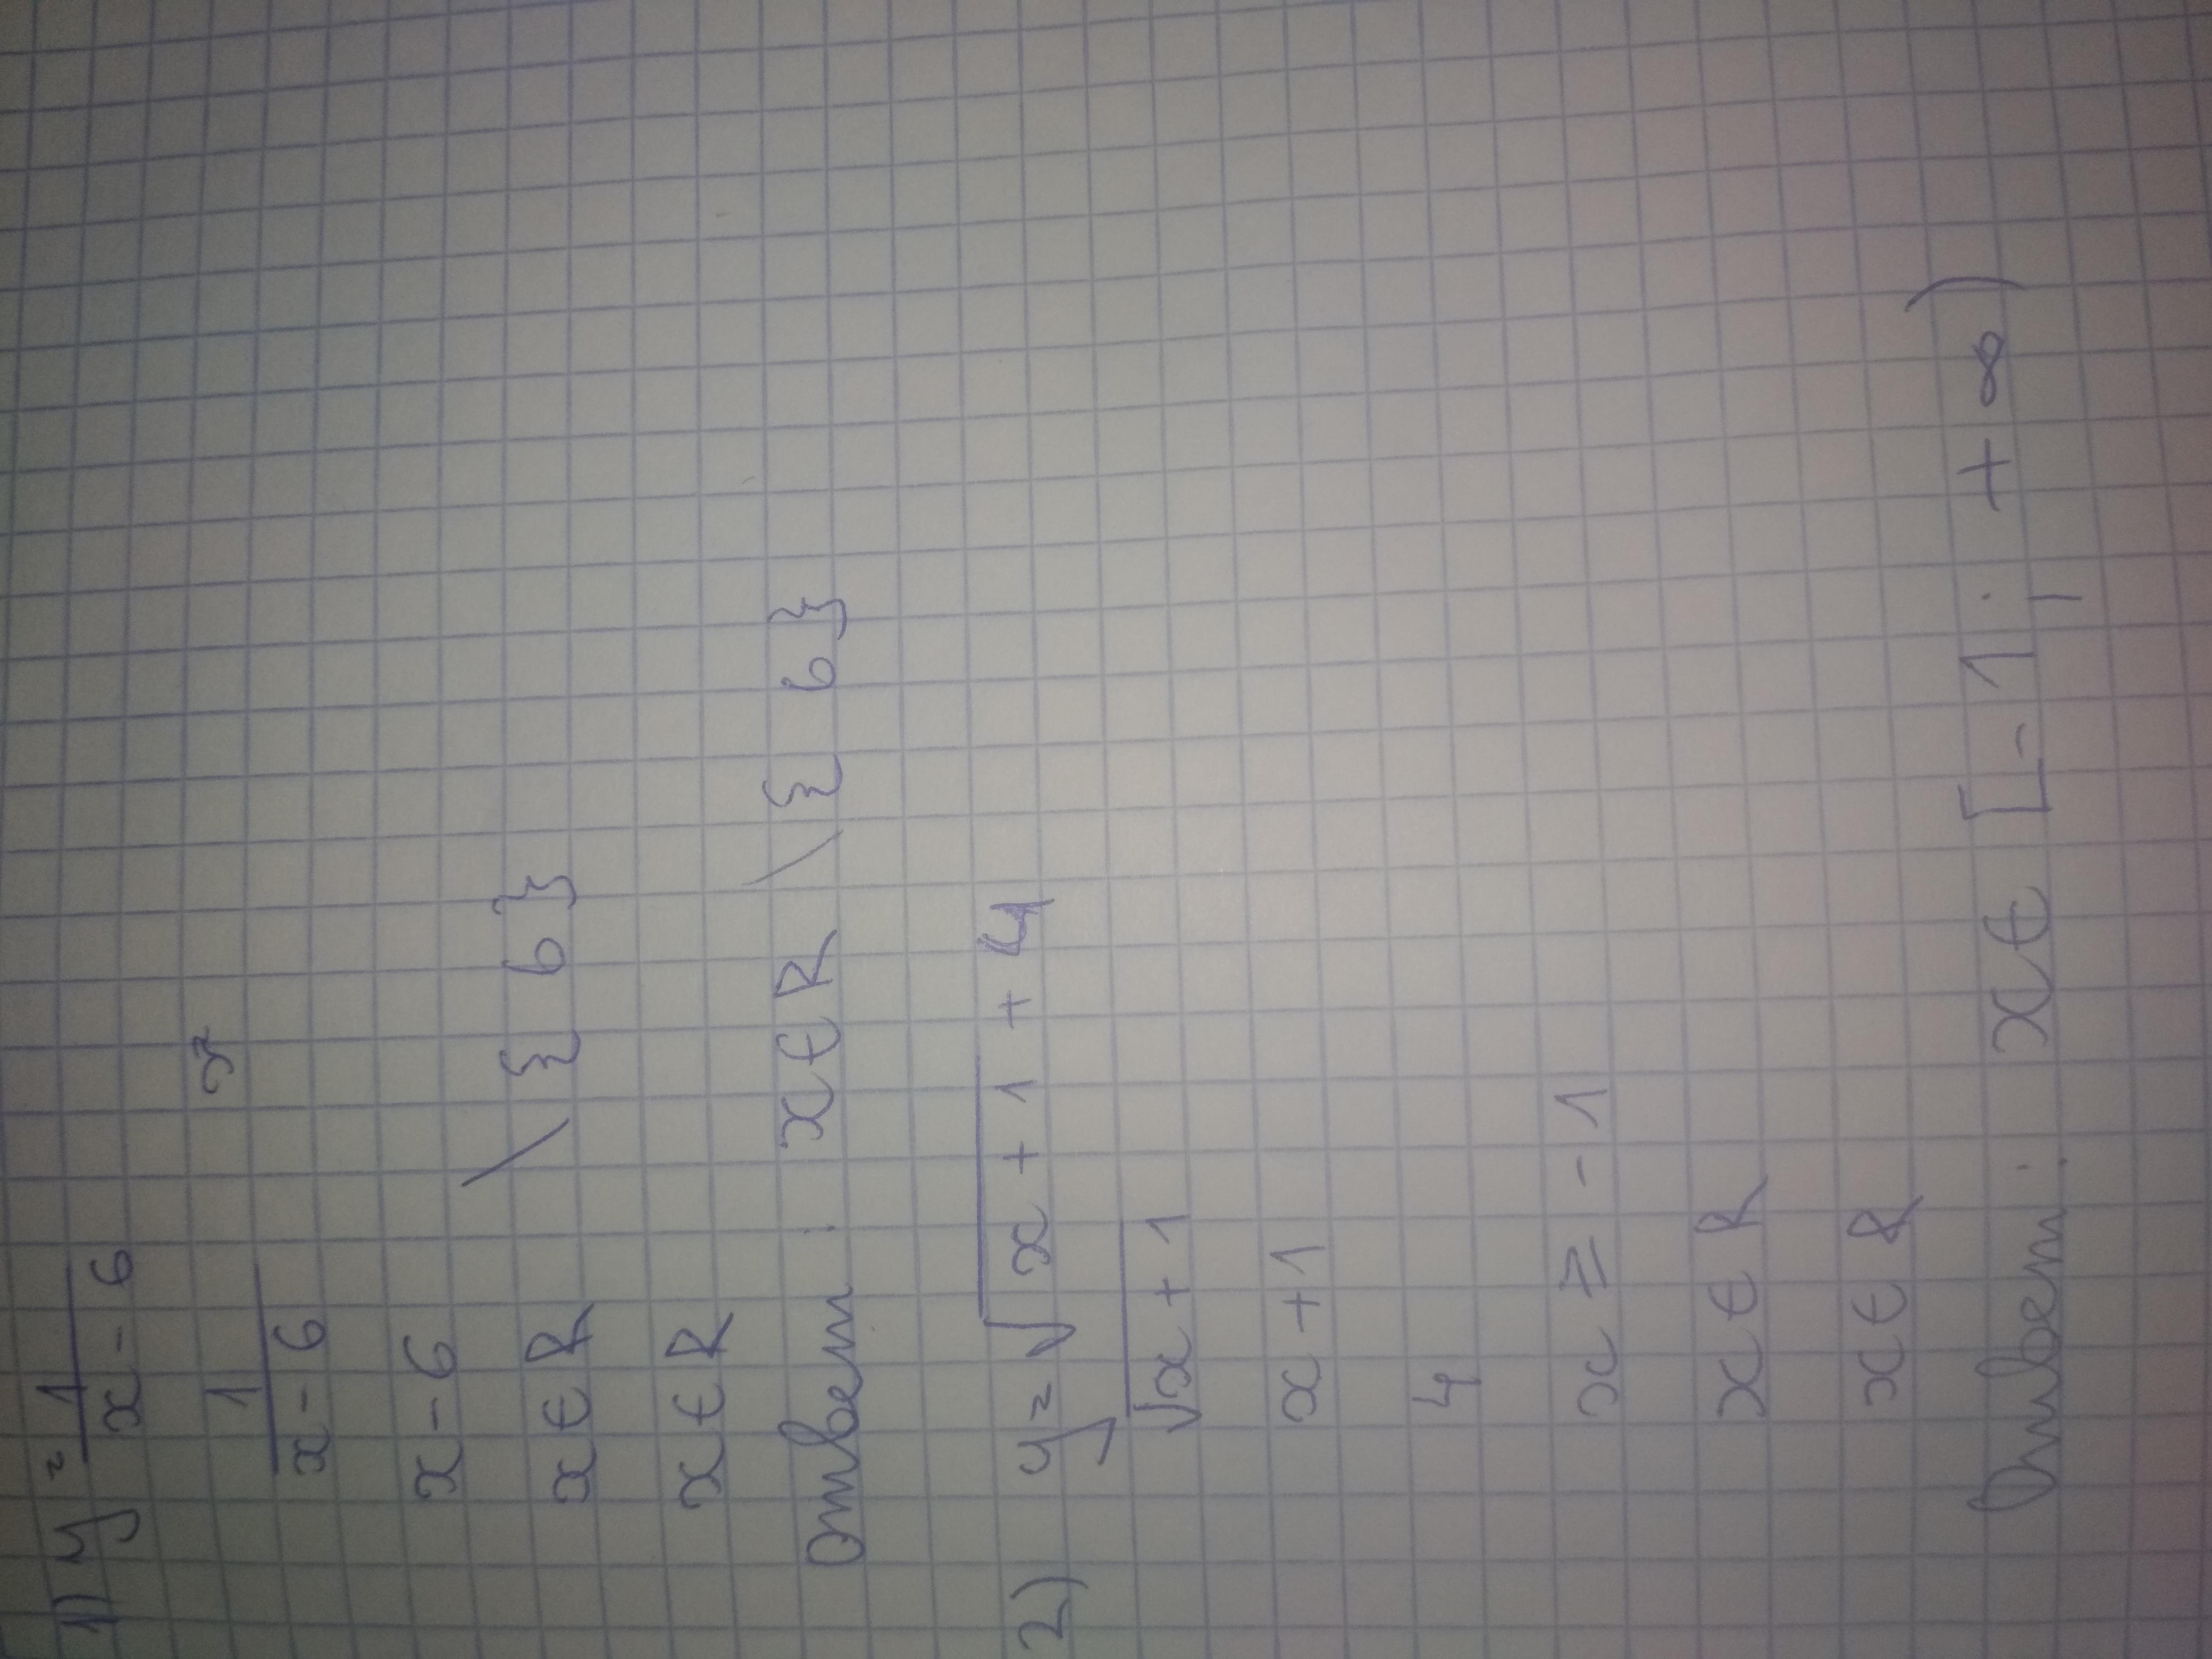 1) y = 1/(x - 6)
x
1/(x - 6)
x - 6
x ∈ R \ { 6 }
x ∈ R
Ответ: x ∈ R \ { 6 }
2) y = √(x + 1) + 4
√(x + 1)
x + 1
4
x ⩾ - 1
x ∈ R
x ∈ R
Ответ: x ∈ [- 1; + ∞)